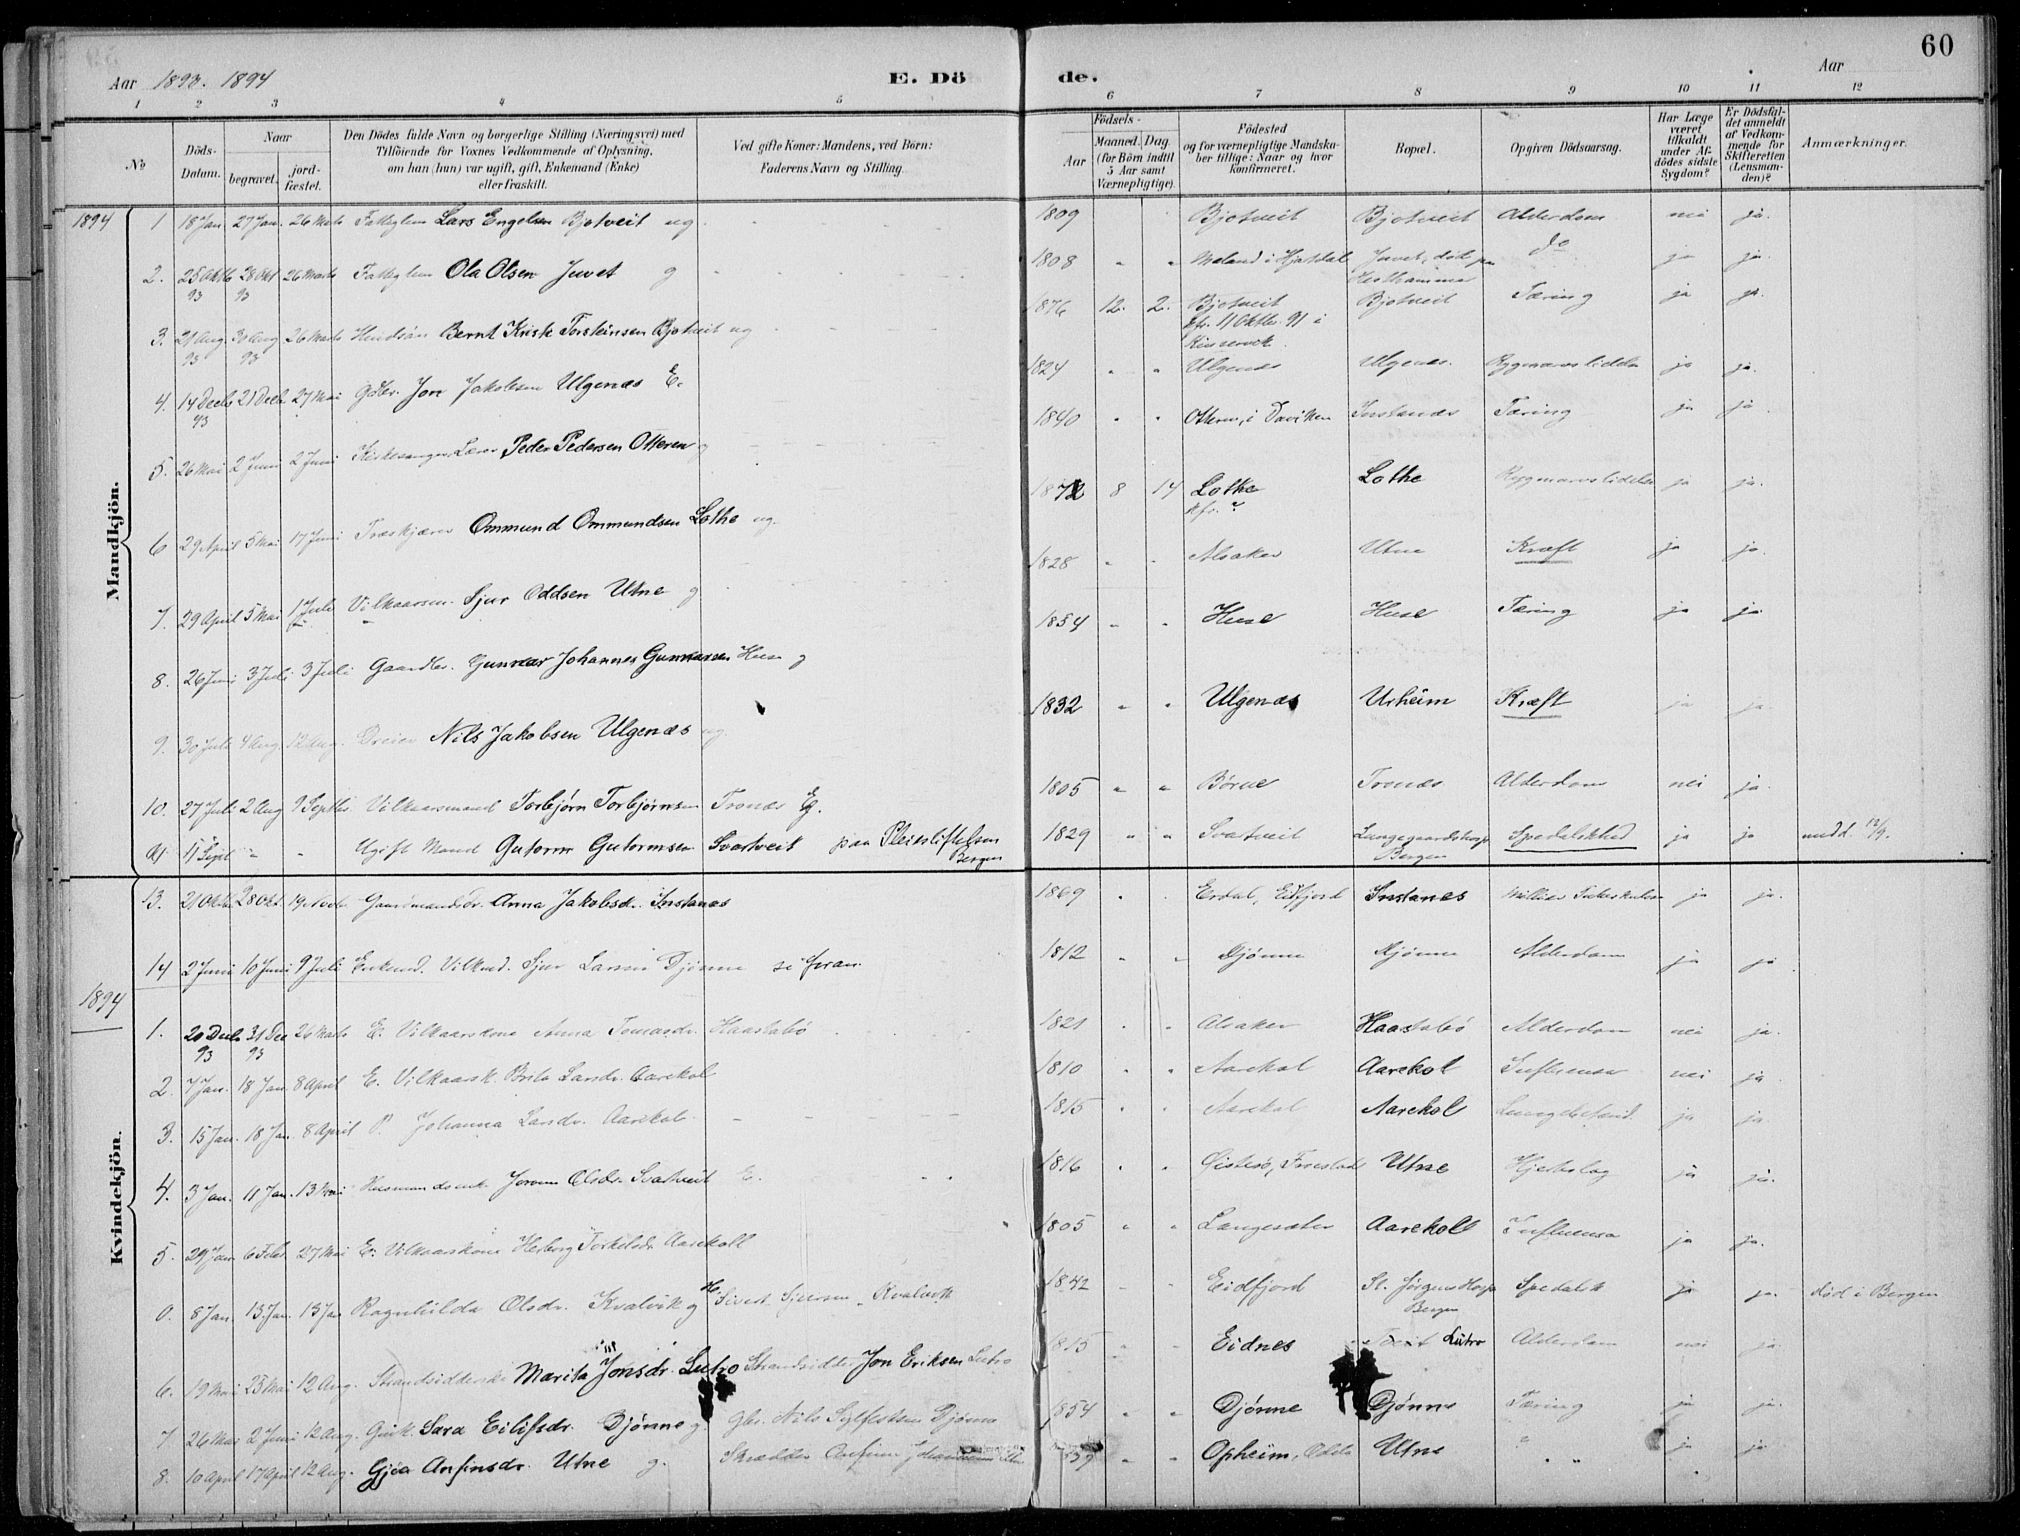 60
Aar 1893. 1894 E. Dö de. Aar
1 2 3 4 5 6 7 8 9 10 11 12
No
Döds-Datum.
Naar
begravet.
jord-fæstet.
Den Dödes fulde Navn og borgerlige Stilling (Næringsvei) med
Tilföiende for Voxnes Vedkommende af Oplysning,
om han (hun) var ugift, gift, Enkemand (Enke)
eller fraskilt.
Ved gifte Koner: Mandens, ved Börn:
Faderens Navn og Stilling
Födsels-
Aar
Maaned. Dag.
(for Börn indtil
5 Aar samt
Værnepligtige)
Födested
og for værnepligtige Mandska-
ber tillige: Naar og hvor
konfirmeret.
Bopæl.
Opgiven Dödsaarsag.
Har Læge
været
tilkaldt
under Af-
dödes sidste
Sygdom?
Er Dödsfal-
det anmeldt
af Vedkom-
mende for
Skifteretten
(Lensman-
den)?
Anmærkninger.
Mandkjön.
1894 1 18 Jan 27 Jan. 26 Marts Fattiglem Lars Engelsen Bjotveit ug 1809 Bjotveit Bjotveit Alderdom nei ja.
2. 25 Oktb 93 28 Okt 93 26 Marts Fattiglem Ola Olsen Juvet g 1808 " " Meland i Hjatdal Juvet, död paa Do ja ja.
3. 21 Aug 93 30 Aug 93 26 Marts Bernt Kristi Torsteinsen Bjotveit ug 1876 12. 2. Bjotveit kfr. 11 Oktbr. 91 i Kinservik Bjotveit Tæring ja ja.
4. 14 Decb 93 21 Decb 27 Mai Gdbr. Jon Jakobsen Ulgenæs E. 1824 " " Ulgenæs Ulgenæs. Rygmarvslidelse ja ja.
5. 26 Mai 2 Juni 2 Juni Kirkesanger Lærer Peder Pedersen Otteren g 1840 " " Otteren, i Daviken Instanæs Tæring ja ja
6 29 April 5 Mai 17 Juni Træskjærer Ommund Ommundsen Lothe ug. 1872 8 14 Lothe kfr. ? Lothe Rygmarvslidelse ja ja.
7. 29 April 5 Mai 1 Juli Vilkaarsm. Sjur Oddsen Utne g 1828 " Alsaker Utne Kræft ja ja.
8. 26 Juni 3 Juli 3 Juli Gaardbr. Gunnar Johannes Gunnarsen Huse g 1854 " " Huse Huse Tæring ja ja.
9. 30 Juli 4 Aug. 12 Aug. Dreier Nils Jakobsen Ulgenæs ug. 1832 " " Ulgenæs Urheim Kræft ja ja
10. 27 Juli 2 Aug 9 Septbr. Vilkaarsmand Torbjørn Torbjørnsen Tronæs Eg. 1805 " " Børve Tronæs Alderdom nei ja.
11 Sept " " Ugift Mand Gutorm Gutormsen Svartveit paa Pleiestiftelsen Bergen 1829 " " Svartveit Lungegaardshosp Bergen Spedalskhed ja ja medd. 12/9.
13. 21 Oktb 28 Okt. 19 Novb. Gaardmandsdr. Anna Jakobsdr. Instanæs 1869 Erdal, Eidfjord Instanes ja ja.
14 2 Juni 10 Juni 9 Juli Enkemd. Vilkmd. Sjur Larsen Djønne se foran. 1812 " " Djønne Djønne Alderdom ja ja
Kvindekjön.
1894
1. 20 Decb 93 31 Dec 93 26 Marts E. Vilkaarskone Anna Tomasdr. Haastabø 1821 " " Alsaker Haastabø Alderdom nei ja.
2. 7 Jan. 18 Jan. 8 April E. Vilkaarsk. Brita Larsdr. Aarekol 1810 " " Aarekol Aarekol Influensa nei ja.
3. 15 Jan. 18 Jan. 8 April P. Johanna Larsdr. Aarekol 1815 " " Aarekol Aarekol Lungebetænd. ja ja.
4. 3 Jan. 11 Jan. 13 Mai Husmandsenk. Jorunn Olsdr. Svartveit E. 1816 " " Øistesø, Utne Hjerteslag ja ja.
5. 29 Jan 6 Febr 27 Mai E. Vilkaarskone Herborg Torkilsdr. Aarekoll 1805 " " Langesæter Aarekoll Influensa ja ja.
0. 8 Jan. 13 Jan. 13 Jan Ragnhilda Olsdr. Kvalvik g Sivert Sjursen Kvalvik 1842 " " Eidfjord St. Jørgens Hosp Bergen Spedalsk ja ja. död i Bergen
6. 19 Mai 25 Mai 12 Aug. Strandsidderske Marita Jonsdr. Lutro Strandsidder Jon Eriksen Lutro 1815 " " Eidnes Lutro Alderdom nei ja.
7 26 Mai 2 Juni 12 Aug. Guik. Sara Eilifsdr. Djønne g. Gbr. Nils Sylfestsen Djønne 1854 " " Djønne Djønne Tæring ja ja.
8. 10 April 17 April 12 Aug. Gjøa Anfinsdr. Utne g. Skrædder Anfinn 59 " " Opheim, Odda Utne " " ja ja